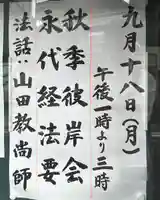 九月十八日（月）
午後一時より三時
秋季彼岸会
永代経法要
法話：山田教尚師